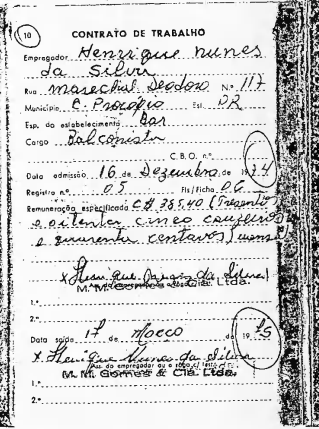 10 CONTRATO DE TRABALHO
Empregador Henrique nunes
da Silva
Rua marechal Deodoro N.º 117
Município C. Procópio Est. PR
Esp. do estabelecimento Bar
Cargo Balconista
C.B.O. n.º
Data admissão 16 de Dezembro de 1974
Registro n.º 05 Fls/Ficha 06
Remuneração especificada CR$ 385,40 (Trezentos
e oitenta cinco cruzeiros
e quarenta centavos) mensal
x Henrique Nunes da Silva
M. M. Gomes & Cia. Ltda.
1.º
2.º
Data saída 17 de Março de 1975
x Henrique Nunes da Silva
Ass. do empregador ou a rôgo c/ test.
M. M. Gomes & Cia. Ltda.
1.º
2.º